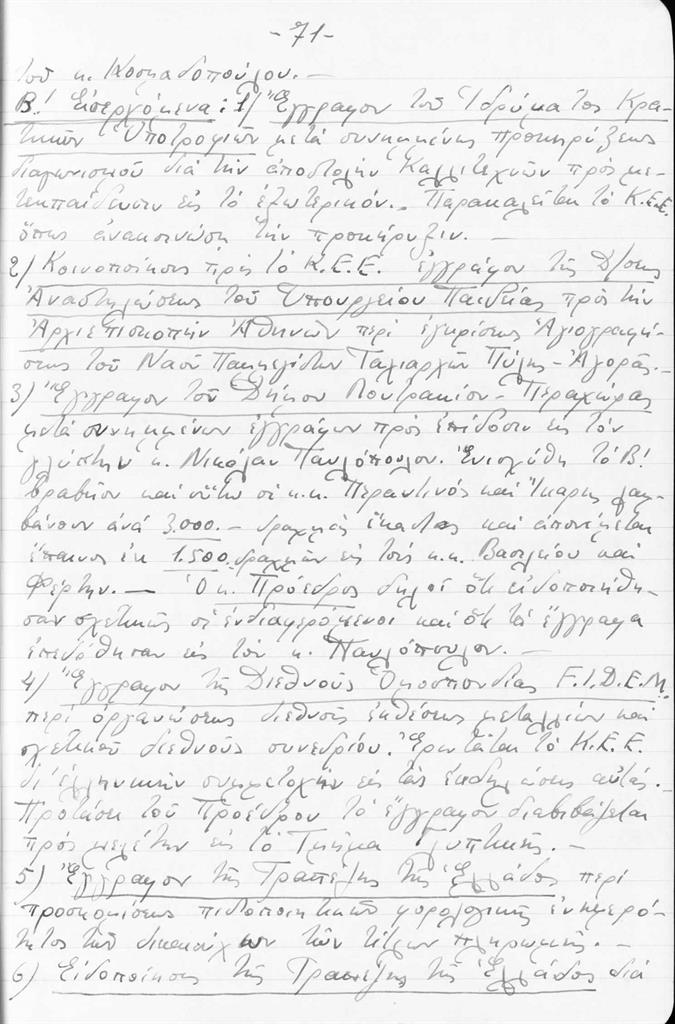 -71-
τοῦ κ. Κοσμαδοπούλου. —
Β! Εἰσερχόμενα: 1/ Ἔγγραφον τοῦ Ἱδρύματος Κρα-
τικῶν Ὑποτροφιῶν μετά συνημμένης προκηρύξεως
διαγωνισμοῦ διά τήν ἀποστολήν Καλλιτεχνῶν πρός με-
τεκπαίδευσιν εἰς τό ἐξωτερικόν. — Παρακαλεῖται τό Κ.Ε.Ε.
ὅπως ἀνακοινώσῃ τήν προκήρυξιν. —
2) Κοινοποίησις πρός τό Κ.Ε.Ε. ἐγγράφου τῆς Δ/σεως
Ἀναστηλώσεως τοῦ Ὑπουργείου Παιδείας πρός τήν
Ἀρχιεπισκοπήν Ἀθηνῶν περί ἐγκρίσεως Ἁγιογραφή-
σεως τοῦ Ναοῦ Παμμεγίστων Ταξιαρχῶν Πύλης - Ἀγορᾶς. —
3) Ἔγγραφον τοῦ Δήμου Λουτρακίου - Περαχώρας
μετά συνημμένων ἐγγράφων πρός ἐπίδοσιν εἰς τόν
γλύπτην κ. Νικόλαν Παυλόπουλον. Ἐνισχύθη τό Β!
βραβεῖον καί οὕτω οἱ κ.κ. Περαντινός καί Ἴκαρης λαμ-
βάνουν ἀνά 3.000. — δραχμάς ἕκαστος καί ἀπονέμεται
ἔπαινος ἐκ 1.500 δραχμῶν εἰς τούς κ.κ. Βασιλείου καί
Φέρτην. — Ὁ κ. Πρόεδρος δηλοῖ ὅτι εἰδοποιήθη-
σαν σχετικῶς οἱ ἐνδιαφερόμενοι καί ὅτι τά ἔγγραφα
ἐπεδόθησαν εἰς τόν κ. Παυλόπουλον. —
4) Ἔγγραφον τῆς Διεθνοῦς Ὁμοσπονδίας F.I.D.E.M.
περί ὀργανώσεως διεθνοῦς ἐκθέσεως μεταλλίων καί
σχετικοῦ διεθνοῦς συνεδρίου. Ἐρωτᾶται τό Κ.Ε.Ε.
δι' ἑλληνικήν συμμετοχήν εἰς τάς ἐκδηλώσεις αὐτάς. —
Προτάσει τοῦ Προέδρου τό ἔγγραφον διαβιβάζεται
πρός μελέτην εἰς τό Τμῆμα Γλυπτικῆς. —
5) Ἔγγραφον τῆς Τραπέζης τῆς Ἑλλάδος περί
προσκομίσεως πιστοποιητικοῦ φορολογικῆς ἐνημερό-
τητος τῶν δικαιούχων τῶν τίτλων πληρωμῆς. —
6) Εἰδοποίησις τῆς Τραπέζης τῆς Ἑλλάδος διά